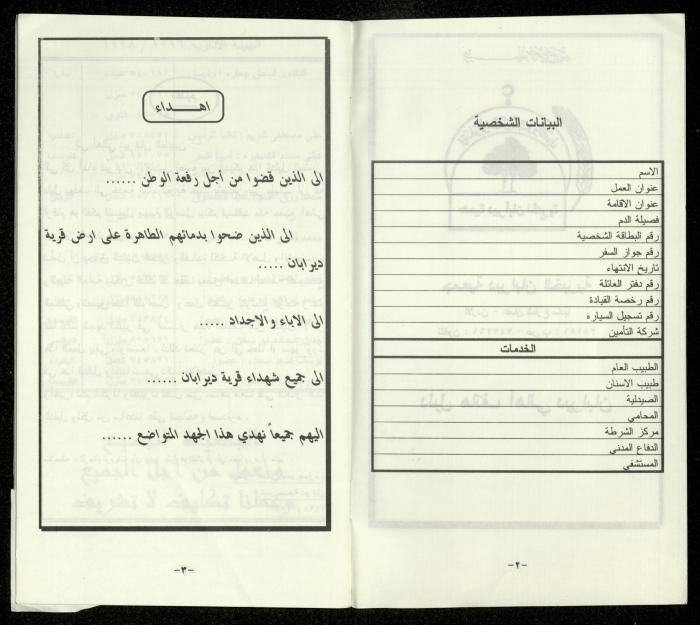 البيانات الشخصية
الاسم
عنوان العمل
عنوان الاقامة
فصيلة الدم
رقم البطاقة الشخصية
رقم جواز السفر
تاريخ الانتهاء
رقم دفتر العائلة
رقم رخصة القيادة
رقم تسجيل السياره
شركة التأمين
الخدمات
الطبيب العام
طبيب الاسنان
الصيدلية
المحامي
مركز الشرطة
الدفاع المدني
المستشفى
-٢-
اهداء
الى الذين قضوا من أجل رفعة الوطن ......
الى الذين ضحوا بدمائهم الطاهرة على ارض قرية
ديرابان .....
الى الاباء والاجداد .....
الى جميع شهداء قرية ديرابان ......
اليهم جميعاً نهدي هذا الجهد المتواضع ......
-٣-